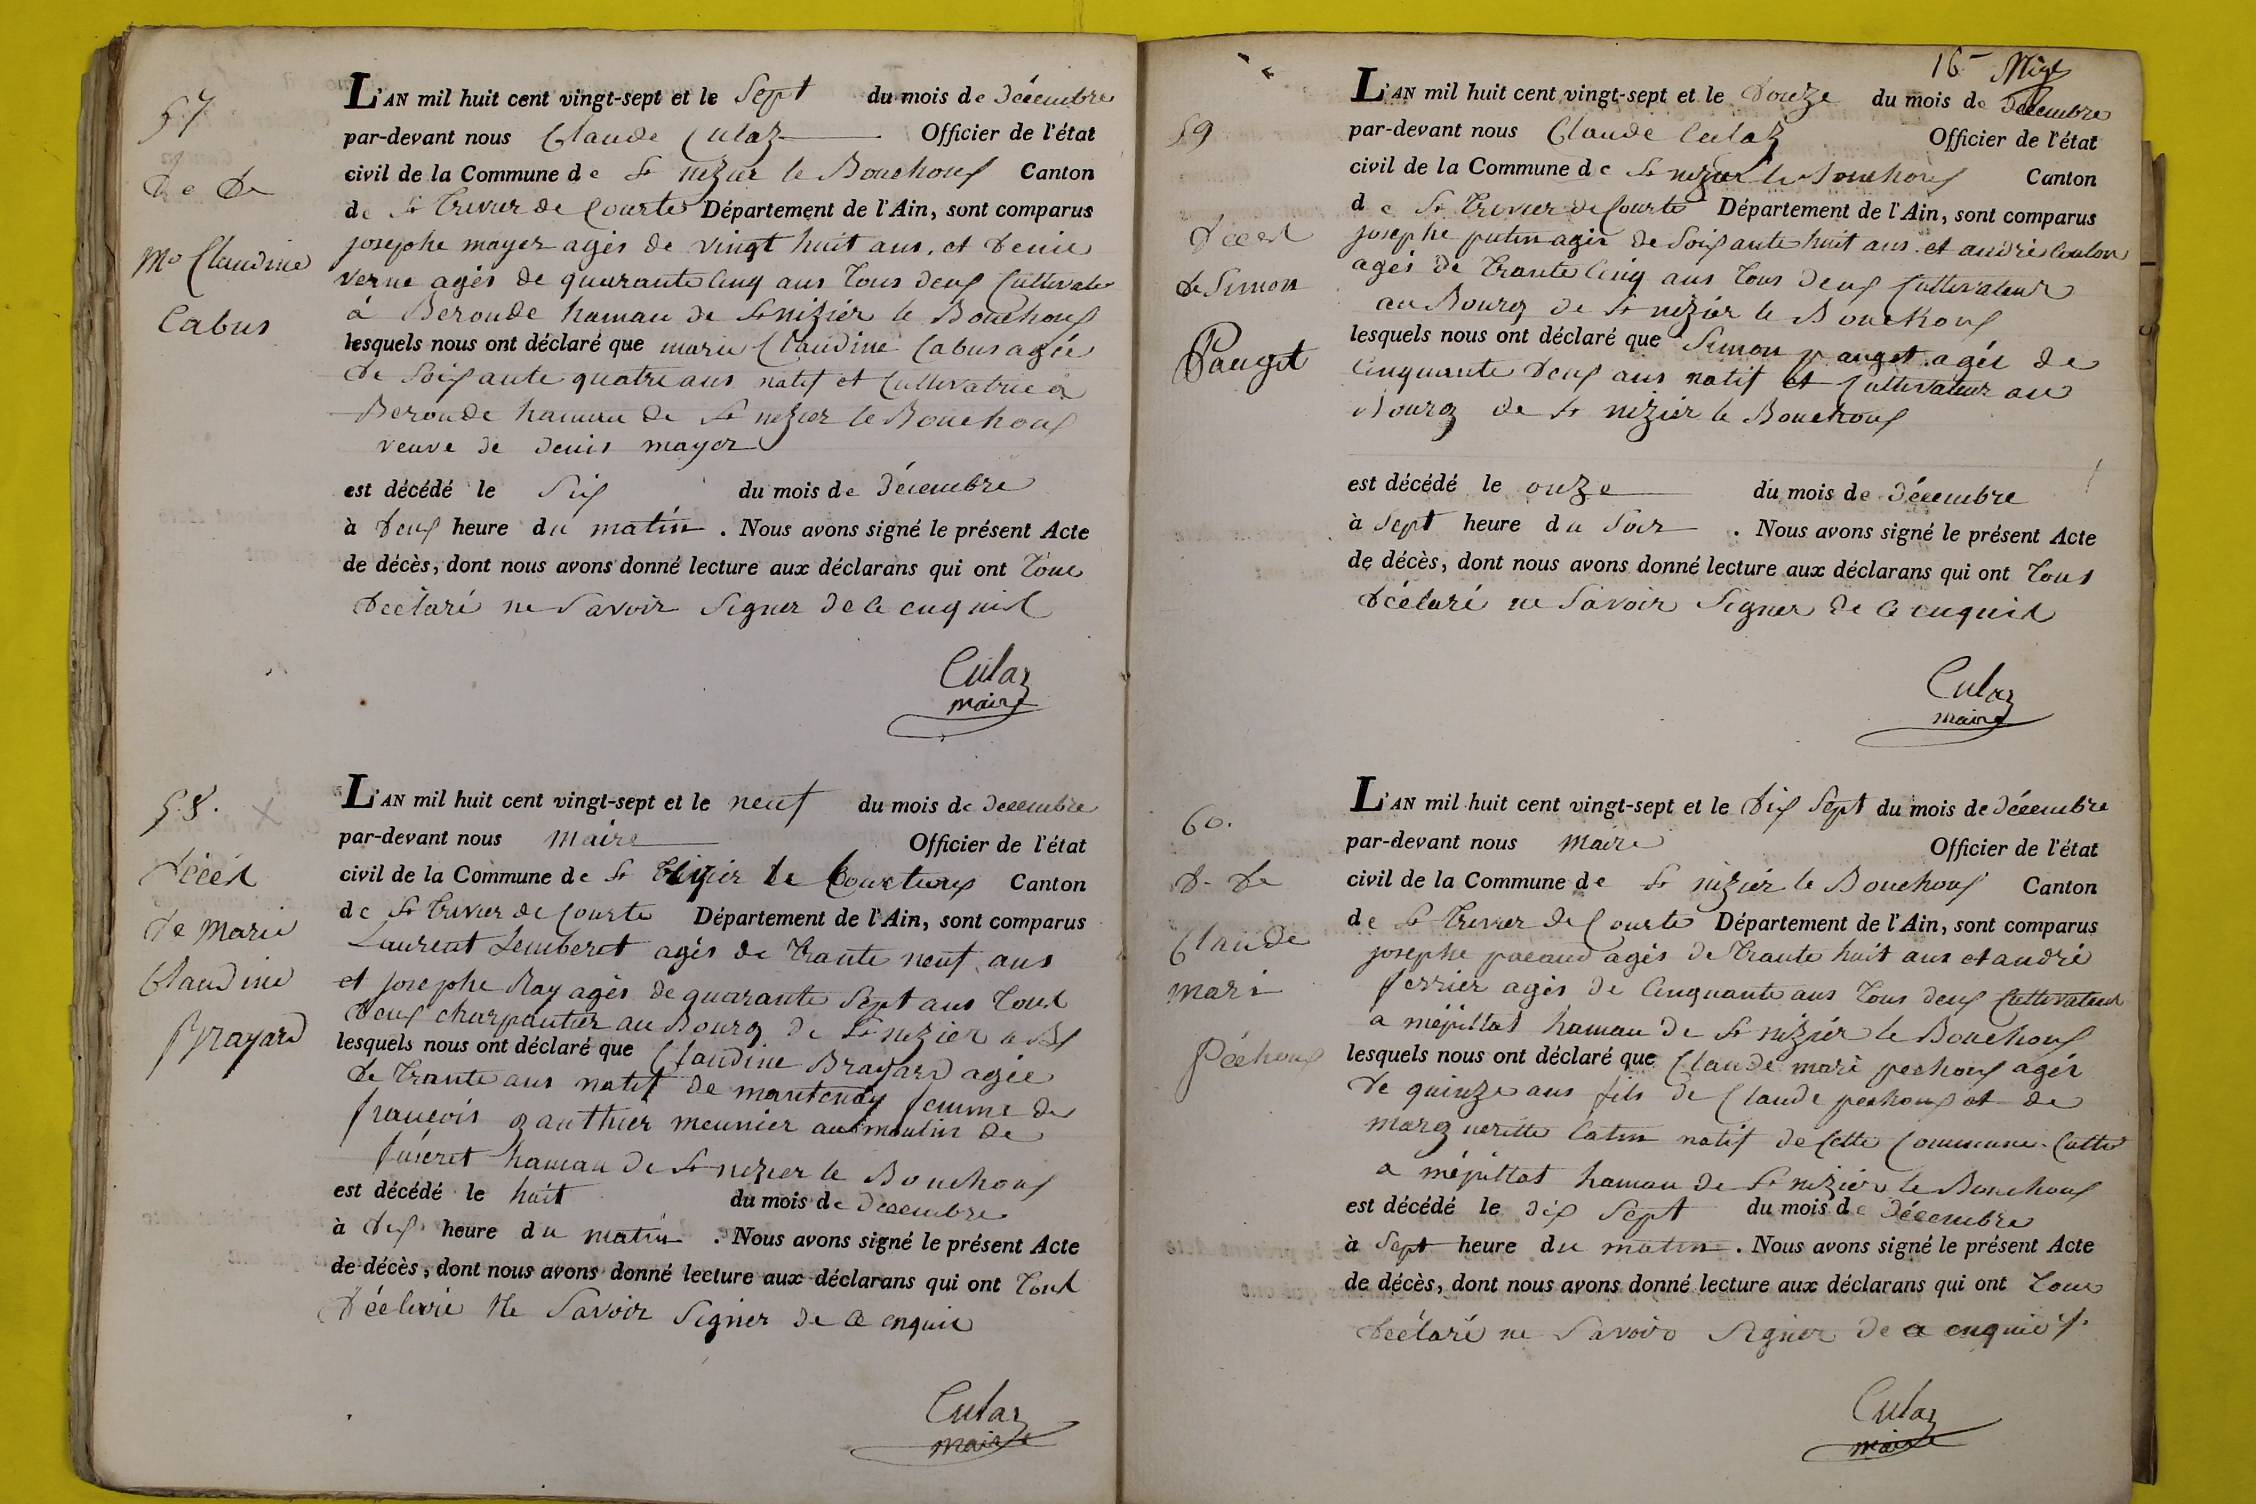 57
L'AN mil huit cent vingt-sept et le Sept du mois de Décembre
par-devant nous Claude Culaz Officier de l'état
civil de la Commune de St nizier le Bouchoux Canton
de St Trivier de Courte Département de l'Ain, sont comparus
D e De
Me Claudine
Cabus
josephe mayer agés de vingt huit ans. et Denie
verne agés de quarante Cinq ans Tous deux Cultivateur
à Beronde hamau de St nizier le Bouchoux
lesquels nous ont déclaré que marie Claudine Cabus agée
de Soixante quatre ans natif et Cultivatrice a
Beronde hamau de St nizier le Bouchoux
veuve de denis mayer
est décédé le Six du mois de Décembre
à Deux heure du matin . Nous avons signé le présent Acte
de décès, dont nous avons donné lecture aux déclarans qui ont Tous
Déclaré ne Savoir Signer de Ce enquis
Culaz
maire
58.
L'AN mil huit cent vingt-sept et le neuf du mois de Décembre
par-devant nous Maire Officier de l'état
civil de la Commune de St Canton
de St Trivier de Courte Département de l'Ain, sont comparus
Décés
de Marie
Claudine
Brayard
Laurent agés de Trante neuf ans
et josephe Ray agés de quarante Sept ans Tous
deux charpantier au Bourg de St nizier le Bx
lesquels nous ont déclaré que Claudine Brayard agée
de Trante ans natif de mantenay femme de
françois gauthier meunier au moulin de
hamau de St nizier le Bouchoux
est décédé le huit du mois de Décembre
à dix heure du matin . Nous avons signé le présent Acte
de décès, dont nous avons donné lecture aux déclarans qui ont Tous
Déclaré Ne Savoir Signer de Ce enquis
Culaz
maire
16 
59
L'AN mil huit cent vingt-sept et le Douze du mois de Décembre
par-devant nous Claude Culaz Officier de l'état
civil de la Commune de St nizier le Bouchoux Canton
de St Trivier de Courte Département de l'Ain, sont comparus
Décés
de Simon
Pauget
josephe putin agés de Soixante huit ans. et andré Coulon
agés de Trante Cinq ans Tous deux Cultivateur
au Bourg de St nizier le Bouchoux
lesquels nous ont déclaré que Simon pauget agés de
Cinquante deux ans natif et Cultivateur au
Bourg de St nizier le Bouchoux
est décédé le onze du mois de Décembre
à Sept heure du Soir . Nous avons signé le présent Acte
de décès, dont nous avons donné lecture aux déclarans qui ont Tous
Déclaré ne Savoir Signer de Ce enquis
Culaz
maire
60.
L'AN mil huit cent vingt-sept et le Dix Sept du mois de Décembre
par-devant nous Maire Officier de l'état
civil de la Commune de St nizier le Bouchoux Canton
de St Trivier de Courte Département de l'Ain, sont comparus
D. De
Claude
mari
Péchoux
josephe pacaud agés de Trante huit ans et andré
ferrier agés de Cinquante ans Tous deux Cultivateur
a mépillat hamau de St nizier le Bouchoux
lesquels nous ont déclaré que Claude mari pechoux agés
de quinze ans fils de Claude pechoux et de
margueritte Catin natif de Cette Commune. Cultr
a mépillat hamau de St nizier le Bouchoux
est décédé le dix Sept du mois de Décembre
à Sept heure du matin . Nous avons signé le présent Acte
de décès, dont nous avons donné lecture aux déclarans qui ont Tous
Déclaré ne Savoir Signer de Ce enquis
Culaz
maire